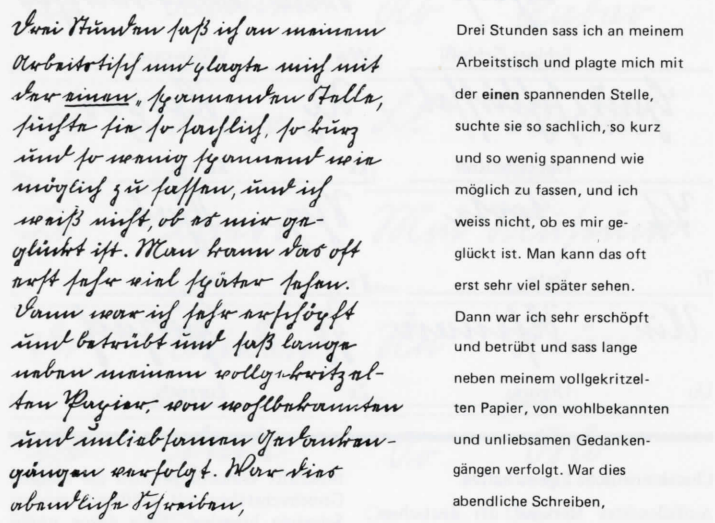 Drei Stunden saß ich an meinem
Arbeitstisch und plagte mich mit
der einen „spannenden Stelle,
suchte sie so sachlich, so kurz
und so wenig spannend wie
möglich zu fassen, und ich
weiß nicht, ob es mir ge-
glückt ist. Man kann das oft
erst sehr viel später sehen.
Dann war ich sehr erschöpft
und betrübt und saß lange
neben meinem vollgekritzel-
ten Papier, von wohlbekannten
und unliebsamen Gedanken-
gängen verfolgt. War dies
abendliche Schreiben,
Drei Stunden sass ich an meinem
Arbeitstisch und plagte mich mit
der einen spannenden Stelle,
suchte sie so sachlich, so kurz
und so wenig spannend wie
möglich zu fassen, und ich
weiss nicht, ob es mir ge-
glückt ist. Man kann das oft
erst sehr viel später sehen.
Dann war ich sehr erschöpft
und betrübt und sass lange
neben meinem vollgekritzel-
ten Papier, von wohlbekannten
und unliebsamen Gedanken-
gängen verfolgt. War dies
abendliche Schreiben,